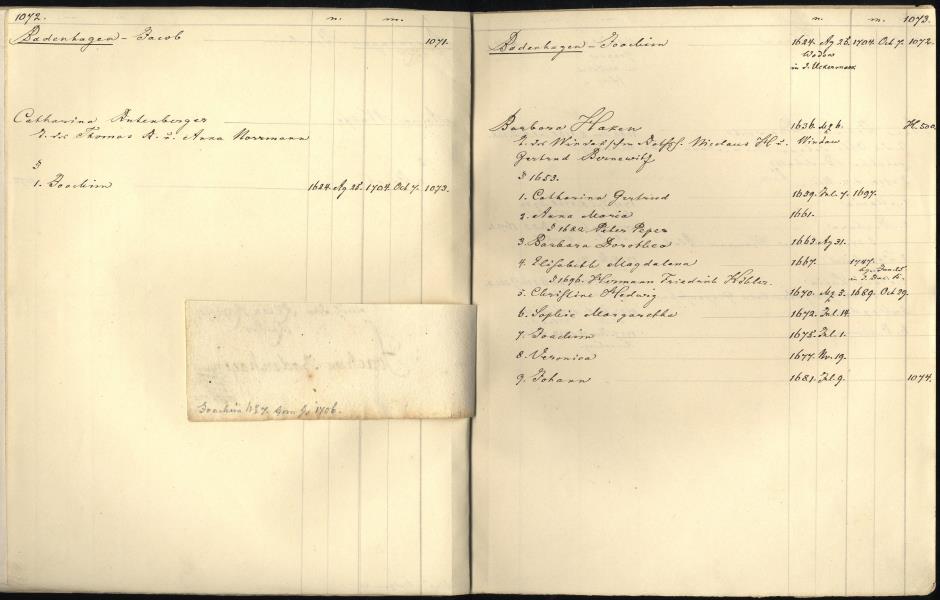 1072. n. m.
Badenhagen - Jacob 1071.
Catharina Antenberger
T. des Thomas A. u. Anna Norrmann
1. Joachim 1624. Ag 28. 1704. Oct 7. 1073.
Joachim 1706.
n. m. 1073.
Badenhagen - Joachim 1624. Ag 28. 1704. Oct 7. 1072.
in d. Uckermark
Barbara Hazen 1636. Mz 6. H. 500.
T. des Windauschen Nicolaus H. u. Windau
Gertrud Bernewitz
1653.
1. Catharina Gertrud 1659. Jul. 7. 1697.
2. Anna Maria 1661.
1682 Peter Peper
3. Barbara Dorothea 1663. Ag 31.
4. Elisabeth Magdalena 1667. 1747.
1696. Hermann Friedrich Köhler.
5. Christine Hedwig 1670. Mz 5. 1689. Oct 29.
6. Sophie Margaretha 1672. Jul. 14.
7. Joachim 1675. Jul. 1.
8. Veronica 1677. Nv. 19.
9. Johann 1681. Jul. 9. 1074.